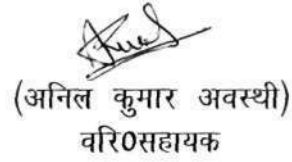 (अनिल कुमार अवस्थी)
वरि0सहायक